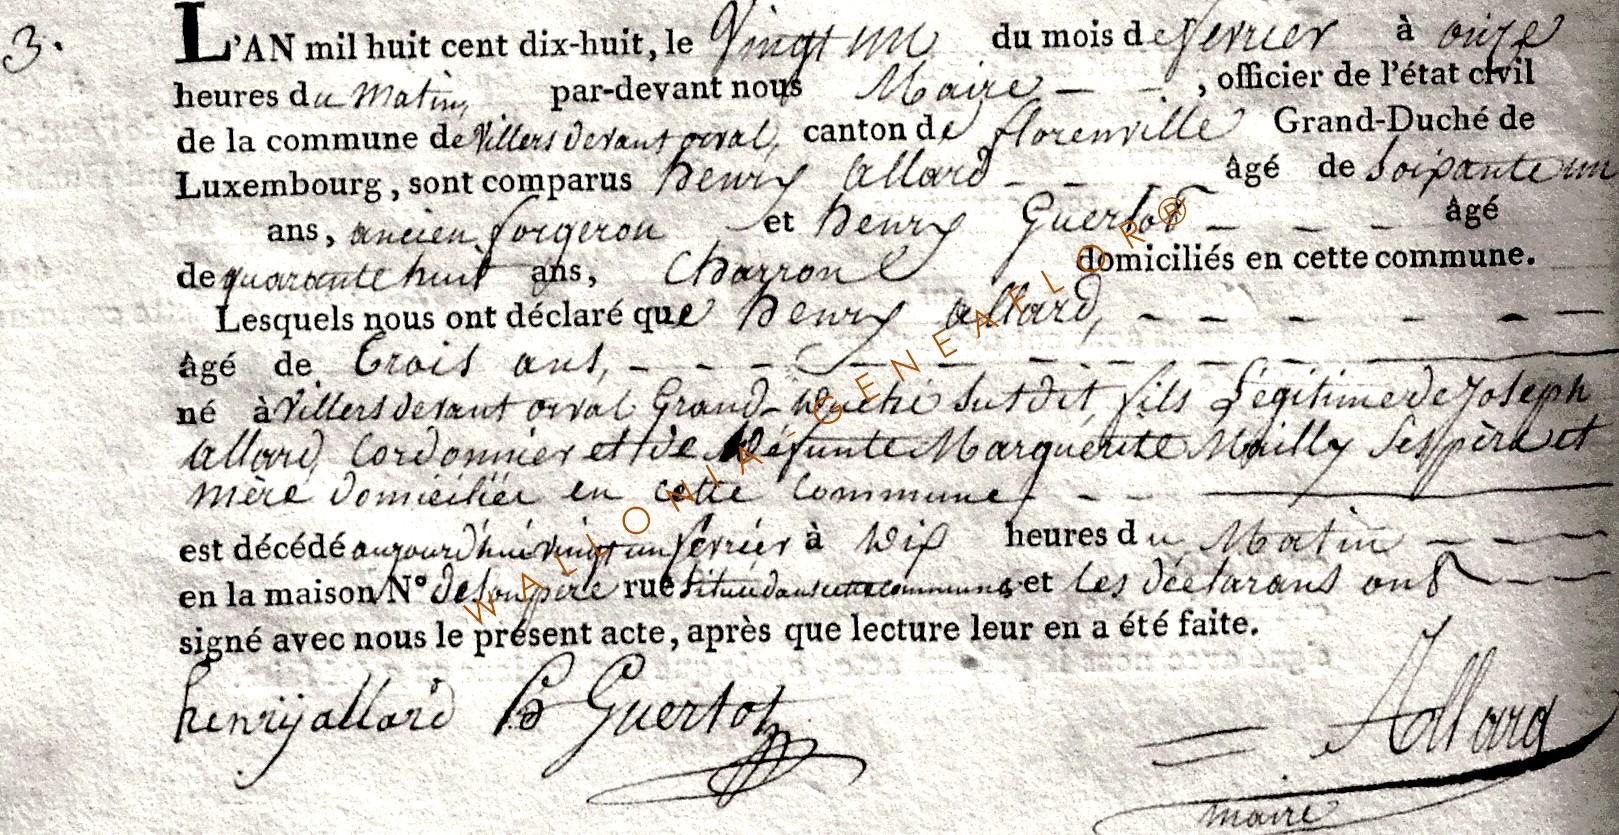 3.
L'AN mil huit cent dix-huit, le Vingt un du mois de ferrier à onze
heures du Matin, par-devant nous Maire — - , officier de l'état civil
de la commune de Villers devant orval, canton de florenville Grand-Duché de
Luxembourg, sont comparus henry allard - - âgé de Soixante un
ans, ancien forgeron et henry Guerlot - - - - âgé
de quarante huit ans, Charron domiciliés en cette commune.
Lesquels nous ont déclaré que henry allard, - - - - - - -
âgé de Trois ans, - - - - - - - - -
né à Villers devant orval Grand-Duché Susdit, fils Légitime de Joseph
allard, Cordonnier et de Défunte Marguerite Mailly Ses père et
mère domiciliés en cette Commune, - - -
est décédé aujourd'hui vingt un ferrier à dix heures du Matin - - - -
en la maison N° de Son père rue Située dans cette commune et les déclarans ont - - -
signé avec nous le présent acte, après que lecture leur en a été faite.
henrij allard h Guerlot = Allard
maire
WALLONIA-GENEAFLOR®